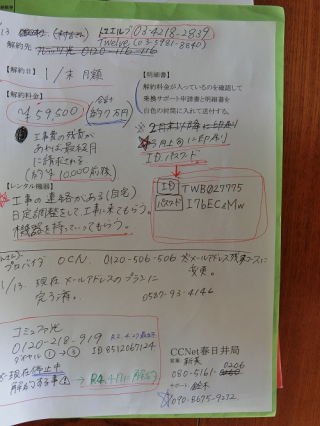 03-4218-2839
解約先 0120-116-116
【解約日】 1/末 月額
【明細書】
解約料金が入っているのを確認して
乗換サポート申請書と明細書を
白色の封筒に入れて送付する。
【解約料金】
¥59,500
約7万円
工事費の残債が
あれば最終月
に請求される
(約¥10,000前後)
ID パスワード
ID TWB027775
パスワード I7bECzMw
【レンタル機器】
工事の連絡がある(自宅)
日定調整をして、工事に来てもらう。
機器を持っていってもらう。
プロバイダ OCN. 0120-506-506 ※メールアドレス残すコースに
変更。
1/13. 現在 メールアドレスのプランに
変更済。
0587-93-4146
コミュファ光
0120-218-919
ダイヤル ① → ③
ID 8512067124
現在停止中
CCNet春日井局
営業 新美
080-5161-0206
サポート 鈴木
090-8695-9272